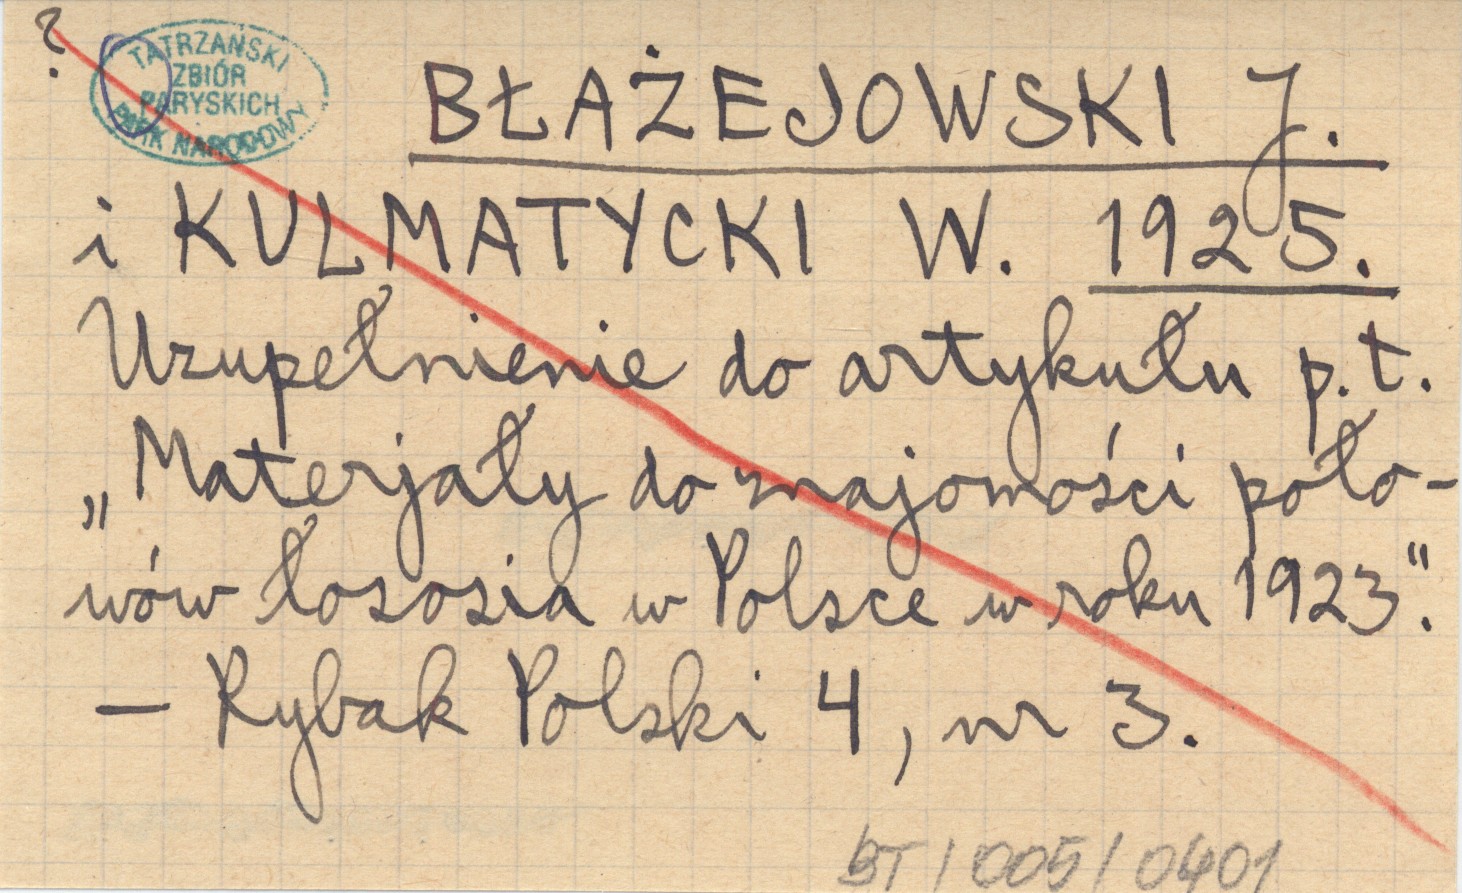 ?
TATRZAŃSKI
ZBIÓR
PARYSKICH
PARK NARODOWY
BŁAŻEJOWSKI J.
i KULMATYCKI W. 1925.
Uzupełnienie do artykułu p.t.
„Materjały do znajomości poło-
wów łososia w Polsce w roku 1923".
— Rybak Polski 4, nr 3.
BT/005/0401